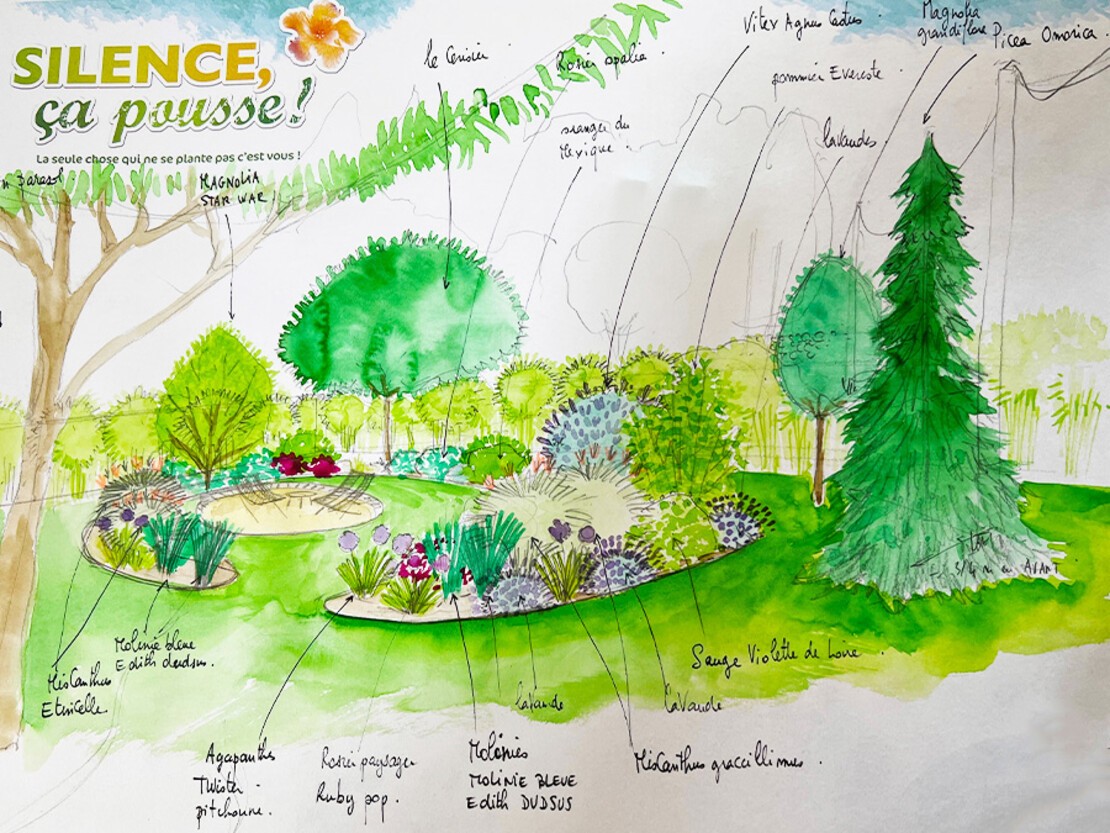 SILENCE,
ça pousse!
La seule chose qui ne se plante pas c'est vous !
le Cerisier
Rosier opalia
Vitex Agnus Castus
Magnolia
grandiflora
Picea Omorica.
pommier Evereste
oranger du
Mexique
lavandes
Parasol
MAGNOLIA
STAR WAR
3/4 m en AVANT
Molinie bleue
Edith dudsus.
Miscanthus
Etincelle.
Sauge Violette de Loire
lavande
lavande
Agapanthe
Twister
pitchoune.
Rosier paysager
Ruby pop.
Molinies
MOLINIE BLEUE
Edith DUDSUS
Miscanthus gracillimus